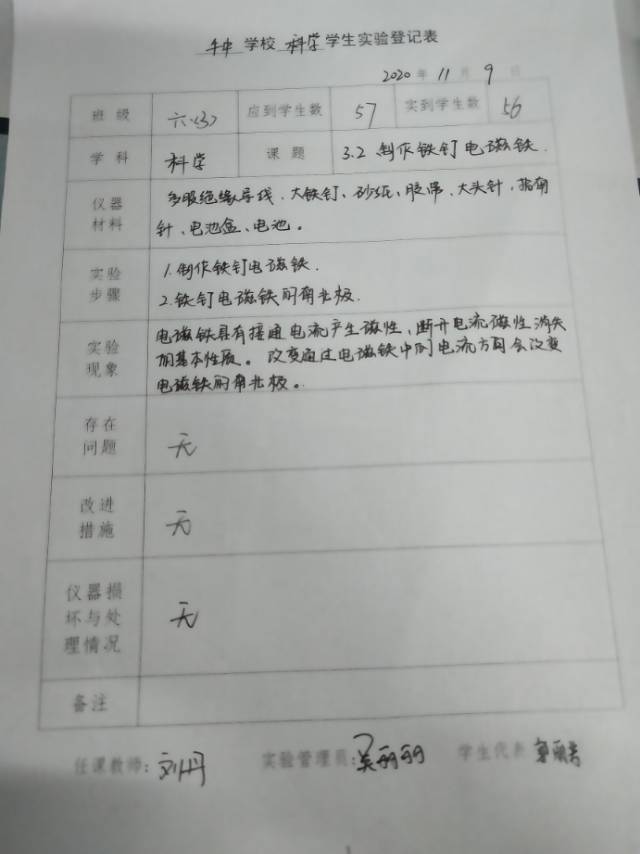 学校 科学 学生实验登记表
2020 年 11 月 9 日
班级 六(3) 应到学生数 57 实到学生数 56
学科 科学 课题 3.2 制作铁钉电磁铁.
仪器材料 多股绝缘导线、大铁钉、砂纸、胶带、大头针、指南
针、电池盒、电池。
实验步骤 1.制作铁钉电磁铁.
2.铁钉电磁铁的南北极.
实验现象 电磁铁具有接通电流产生磁性,断开电流磁性消失
的基本性质。改变通过电磁铁中的电流方向会改变
电磁铁的南北极。
存在问题 无
改进措施 无
仪器损坏与处理情况 无
备注
任课教师:刘丹 实验管理员:吴丽丽 学生代表